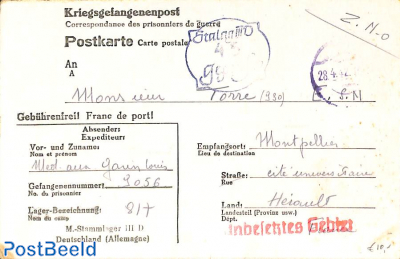 Kriegsgefangenenpost
Correspondance des prisonniers de guerre
Postkarte Carte postale
Stalag III D
28.4.
Z.N.O
An
A
Monsieur Torre (930)
Gebührenfrei! Franc de port!
Absender:
Expediteur:
Vor- und Zuname:
Nom et prénom
Louis
Gefangenennummer: 3056
No. du prisonnier
Lager-Bezeichnung: 817
Nom du camp
M.-Stammlager III D
Deutschland (Allemagne)
Empfangsort: Montpellier
Lieu de destination
Straße: cité universitaire
Rue
Land: Hérault
Landesteil (Provinz usw.)
Dépt.
Unbesetztes Gebiet
PostBeeld